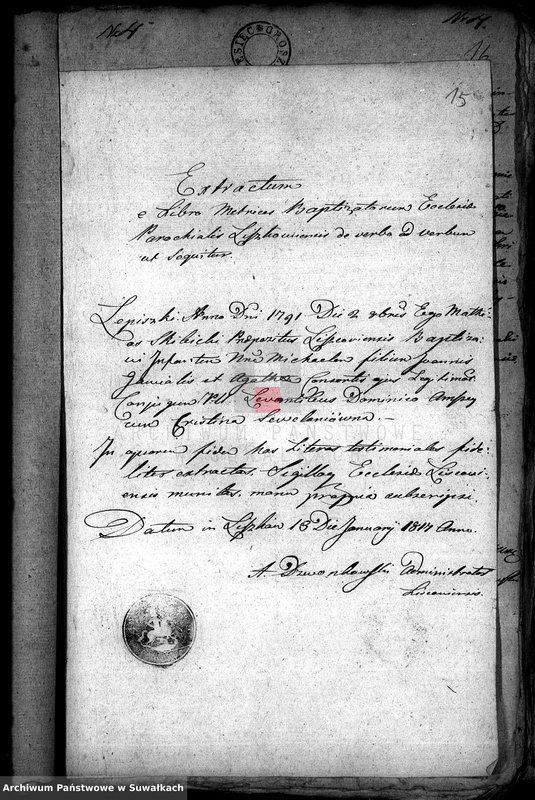 No 4
No 4.
SIĘC GROSZ
16
15
Extractum
e Libro Metrices Baptizatorum Ecclesiæ
Parochialis Lipskoviensis de verbo ad verbum
ut sequitur.
Lepiszki. Anno Dni 1791 Die 2 Xbris Ego Mathi-
as Skibicki Præpozitus Lipscoviensis Baptiza-
vi Infantem Nne Michaelem filium Joannis
et Agathæ Consortis ejus Legitimor:
Conjugum. Levantibus Dominico
cum Cristina
In quorum fidem has Literas testimoniales fide-
liter extractas, Sigillo Ecclesiæ Liscovi-
ensis munitas, manu propria subscripsi.
Datum in Lipsko 13 Die January 1814 Anno.
A. Dzwonkowski Administrator
Liscoviensis.
Archiwum Państwowe w Suwałkach